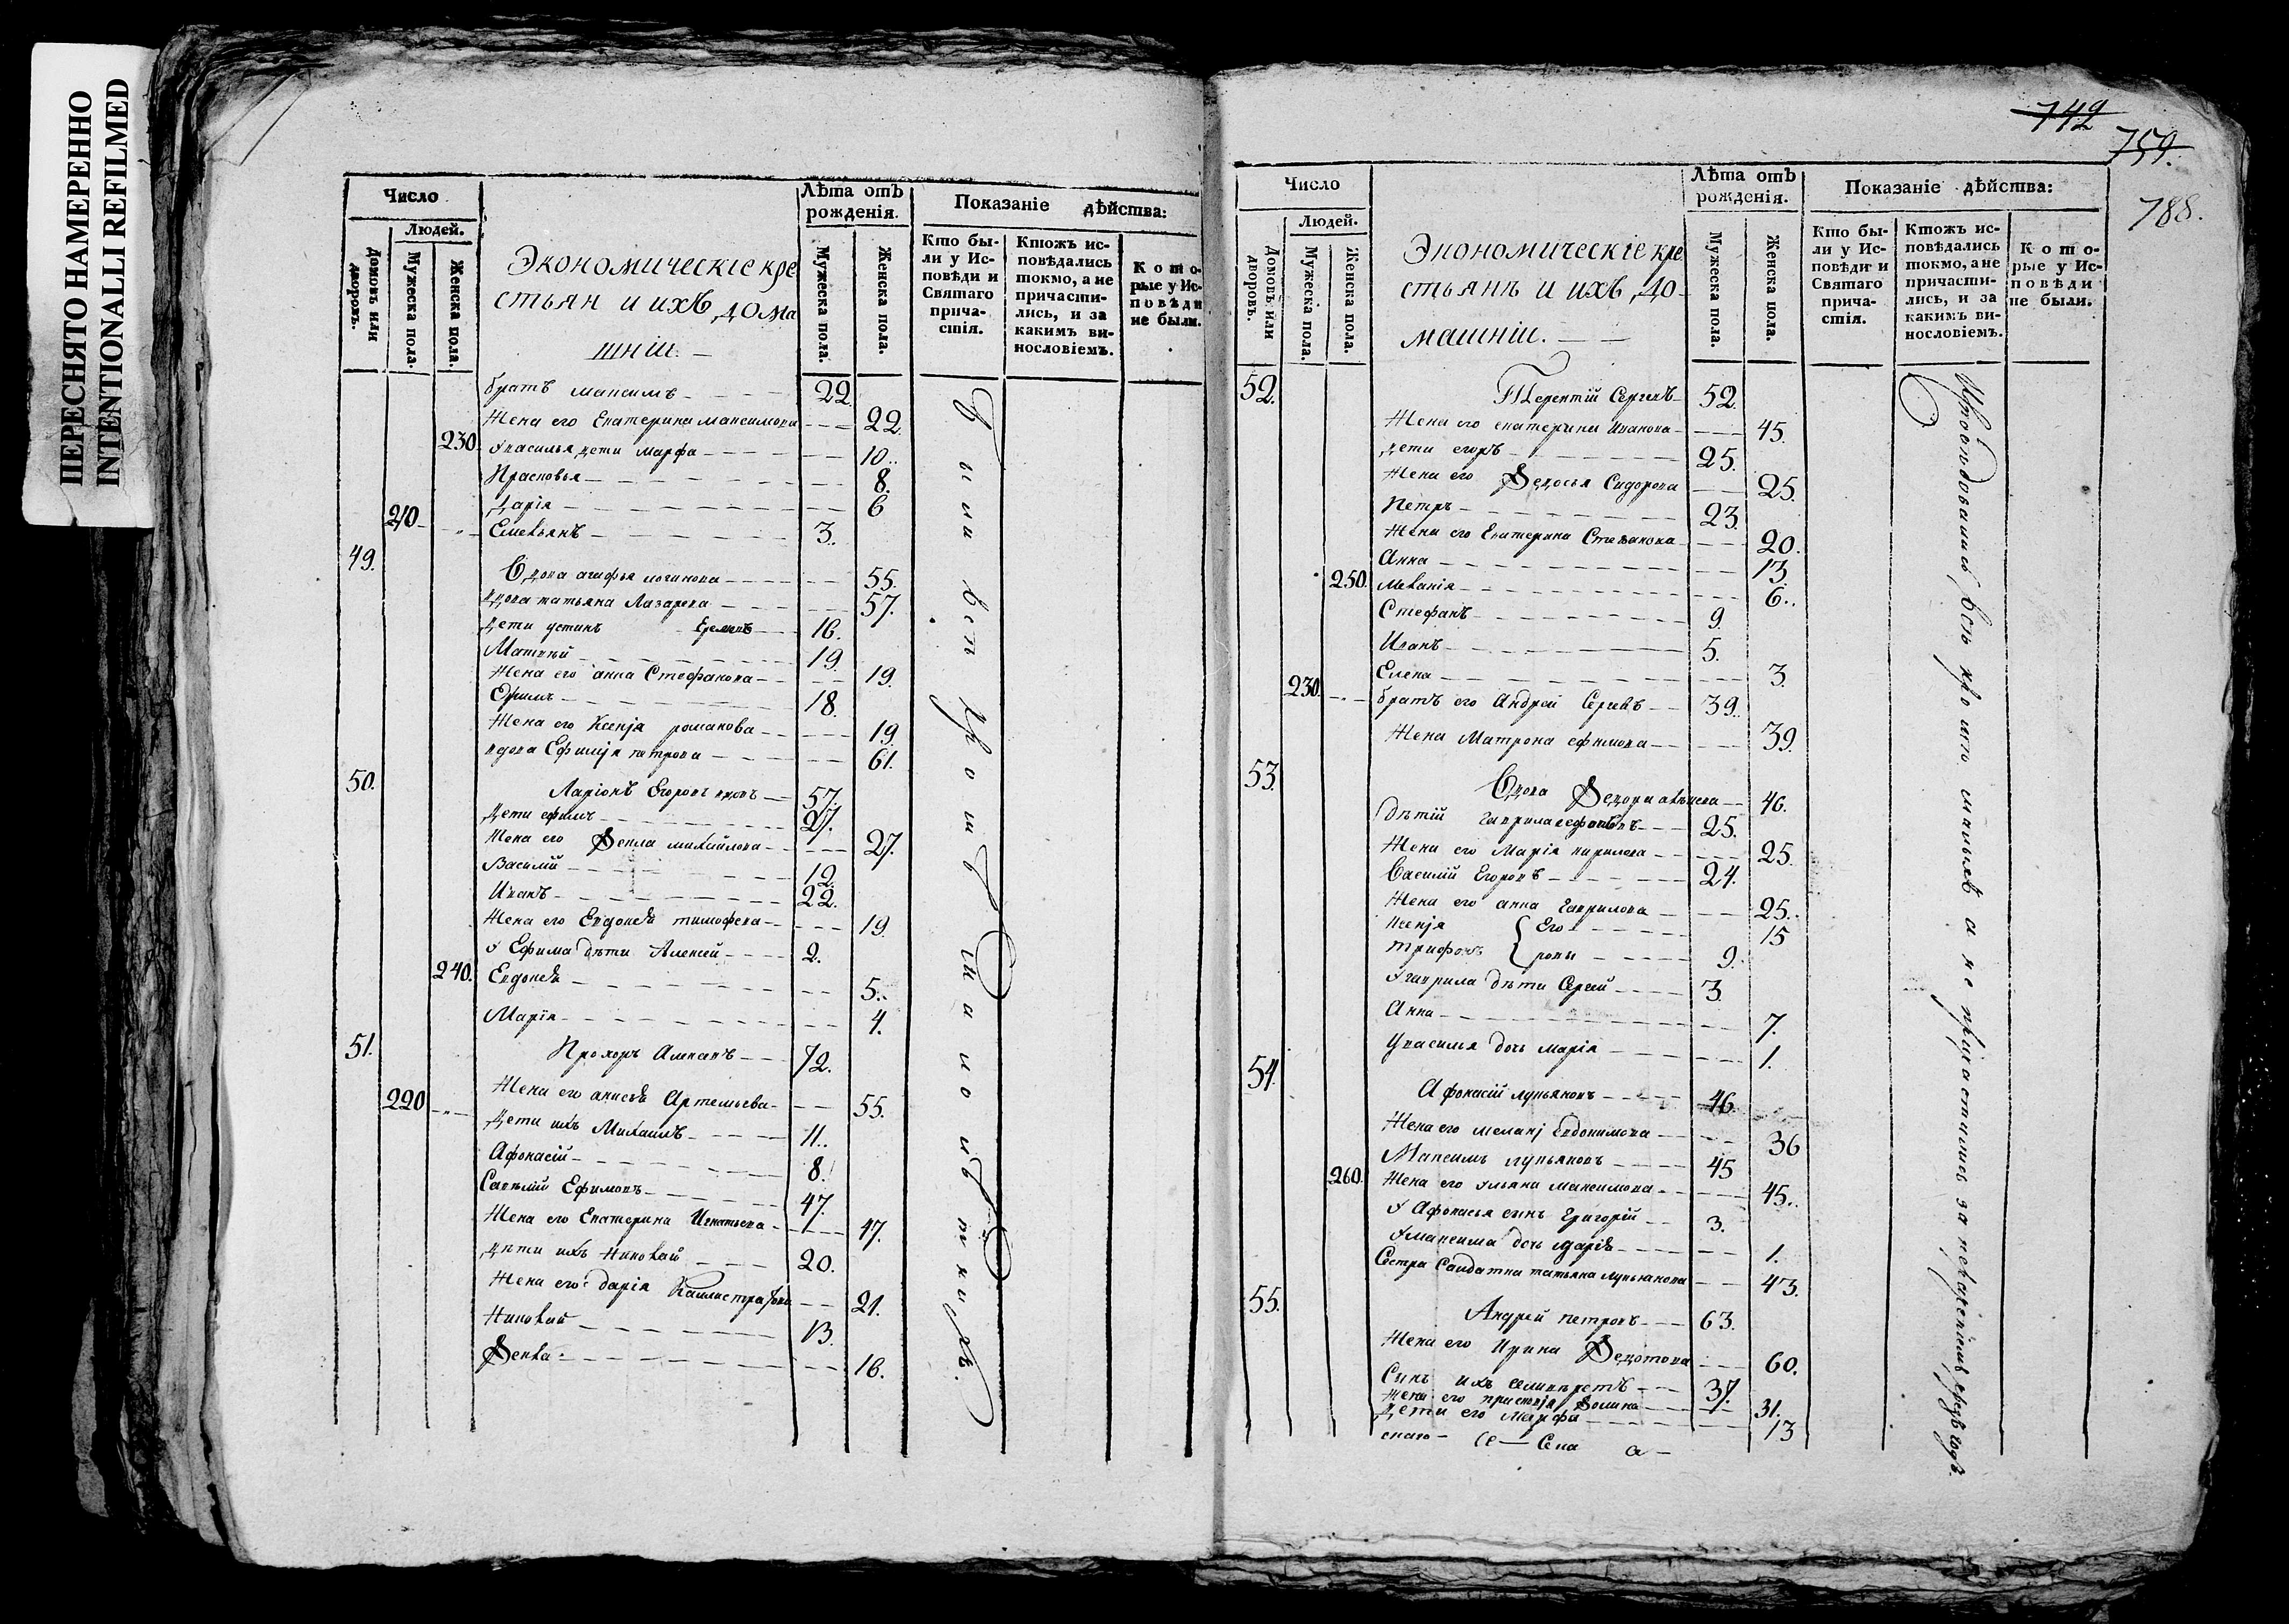 ПЕРЕСНЯТО НАМЕРЕННО
INTENTIONALLI REFILMED
Число
Людей.
Домовъ или дворовъ.
Мужеска пола.
Женска пола.
Экономическіе кре
стьян и ихъ дома
шніи.
Лѣта отъ рожденія.
Мужеска пола.
Женска пола.
Показаніе дѣйства:
Кто бы-
ли у Ис-
повѣди и
Святаго
прича-
стія.
Ктожъ ис-
повѣдались
токмо, а не
причасти-
лись, и за
какимъ ви-
нословіемъ.
Кото-
рые у Ис-
повѣди
не были.
братъ максимъ 22.
Жена его Екатерина максимова 22.
230. У василья дети марфа 10.
Прасковья 8.
Дарія 6
210 Емельянъ 3.
49.
Вдова агафья логинова 55.
Вдова татьяна Лазарева 57.
дети устинъ 16.
Матвѣй 19.
Жена его анна Стефанова 19.
Ефимъ 18.
Жена его Ксенія романова 19.
вдова Ефимія петрова 61.
50.
Ларіонъ Егоровъ вдовъ 57.
Дети ефимъ 27.
Жена его Ѳекла михайлова 27.
Василій 12.
Иванъ 22.
Жена его Евдокѣя тимофева 19.
У Ефима дѣти Алексей 2.
240. Евдокѣя 5.
Марія 4.
51.
Прохоръ 72.
220 Жена его анисья Артемьева 55.
Дети ихъ Михаилъ 11.
Афонасій 8.
Савелій Ефимовъ 47.
Жена его Екатерина Игнатьева 47.
Дѣти ихъ Николай 20.
Жена его дарія Каллистратова 21.
Николай 13.
Ѳекла 16.
742
759.
788.
Число
Людей.
Домовъ или дворовъ.
Мужеска пола.
Женска пола.
Экономическіе кре
стьянъ и ихъ до-
машніи.
Лѣта отъ рожденія.
Мужеска пола.
Женска пола.
Показаніе дѣйства:
Кто бы-
ли у Ис-
повѣди и
Святаго
прича-
стія.
Ктожъ ис-
повѣдались
токмо, а не
причасти-
лись, и за
какимъ ви-
нословіемъ.
Кото-
рые у Ис-
повѣди
не были.
52.
Терентій Сергевъ 52.
Жена его екатерина Иванова 45.
дети егоръ 25.
Жена его Ѳедосья Сидорова 25.
Петръ 23.
Жена его Екатерина Степанова 20.
Анна 13.
250. Меланія 6.
Стефанъ 9.
Иванъ 5.
Елена 3.
230. братъ его Андрей Сергевъ 39.
Жена Матрона ефимова 39.
53.
Вдова Ѳедора 46.
дѣтій гаврила 25.
Жена его Марія кирилова 25.
Василій Егоровъ 24.
Жена его анна гаврилова 25.
Ксенія Его 15
трифонъ ровы 9.
У гаврила дѣти Сергей 3.
Анна 7.
У василья дочь марія 1.
54.
Афонасій лукьяновъ 46.
Жена его меланія Евдокимова 36
Максимъ лукьяновъ 45
260. Жена его ульяна максимова 45.
У Афонасья сынъ григорій 3.
У максима дочь дарія 1.
Сестра Салдатка татьяна лукьянова 43.
55.
Андрей петровъ 63.
Жена его Ирина Ѳедотова 60.
Сынъ ихъ 37.
Жена его Ѳомина 31.
дети его Марфа 13
Исповѣдовались всѣ кромѣ малыхъ а не причастились за